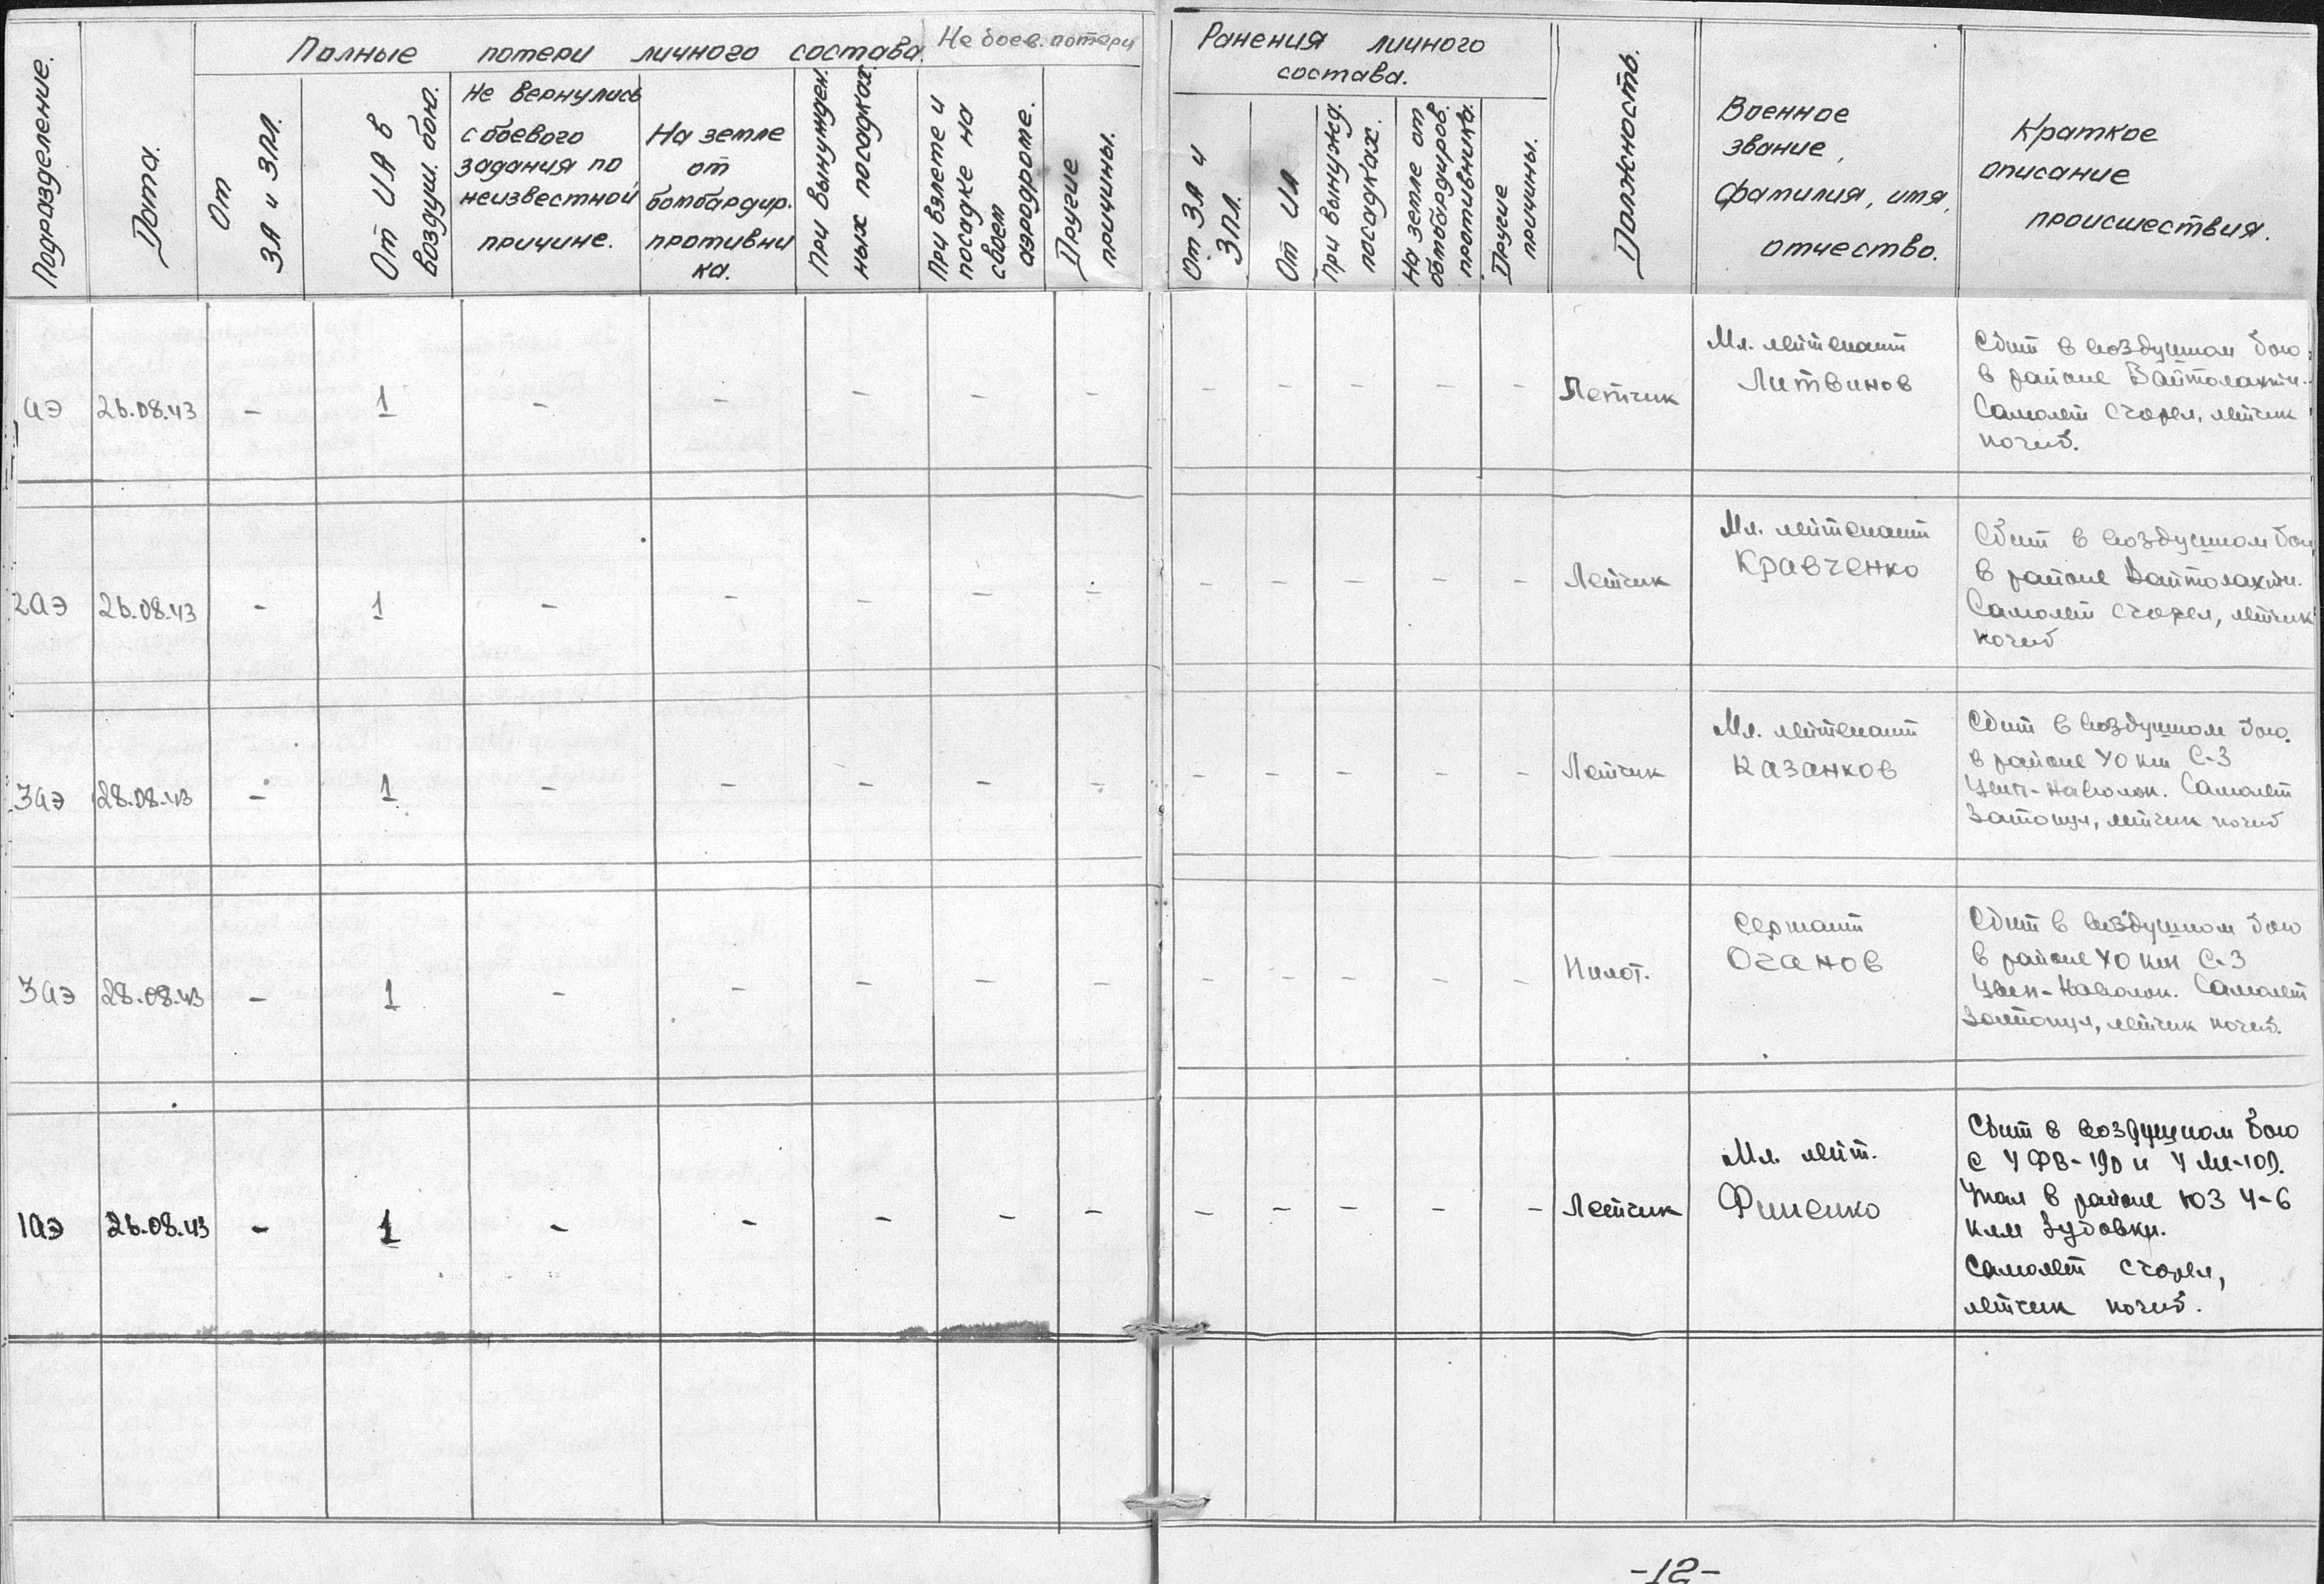 Полные потери личного состава. Не боев. потери
Ранения личного
состава.
Подразделение.
Дата.
От
ЗА и ЗПЛ.
От ИА в
воздуш. бою.
Не вернулись
с боевого
задания по
неизвестной
причине.
На земле
от
бомбардир.
противни
ка.
При вынужден.
ных посадках.
При взлете и
посадке на
своем
аэродроме.
Другие
причины.
От ЗА и
ЗПЛ.
От ИА
При вынужд.
посадках.
На земле от
бомбардиров.
противника.
Другие
причины.
Должность.
Военное
звание,
фамилия, имя,
отчество.
Краткое
описание
происшествия.
аэ 26.08.43 - 1 - - - - - - - - - - Летчик
Мл. лейтенант
Литвинов
Сбит в воздушном бою
в районе
Самолет сгорел, летчик
погиб.
2аэ 26.08.43 - 1 - - - - - - - - - - Летчик
Мл. лейтенант
Кравченко
Сбит в воздушном бою
в районе
Самолет сгорел, летчик
погиб
3аэ 28.08.43 - 1 - - - - - - - - - - Летчик
Мл. лейтенант
Казанков
Сбит в воздушном бою.
в районе 40 км С-З
Цып-Наволок. Самолет
Затонул, летчик погиб
3аэ 28.08.43 - 1 - - - - - - - - - - Пилот.
Сержант
Оганов
Сбит в воздушном бою
в районе 40 км С-З
Цып-Наволок. Самолет
Затонул, летчик погиб.
1аэ 26.08.43 - 1 - - - - - - - - - - Летчик
Мл. лейт.
Финенко
Сбит в воздушном бою
с 4 ФВ-190 и 4 Ме-109.
Упал в районе ЮЗ 4-6
клм Зубовки.
Самолет сгорел,
летчик погиб.
-12-